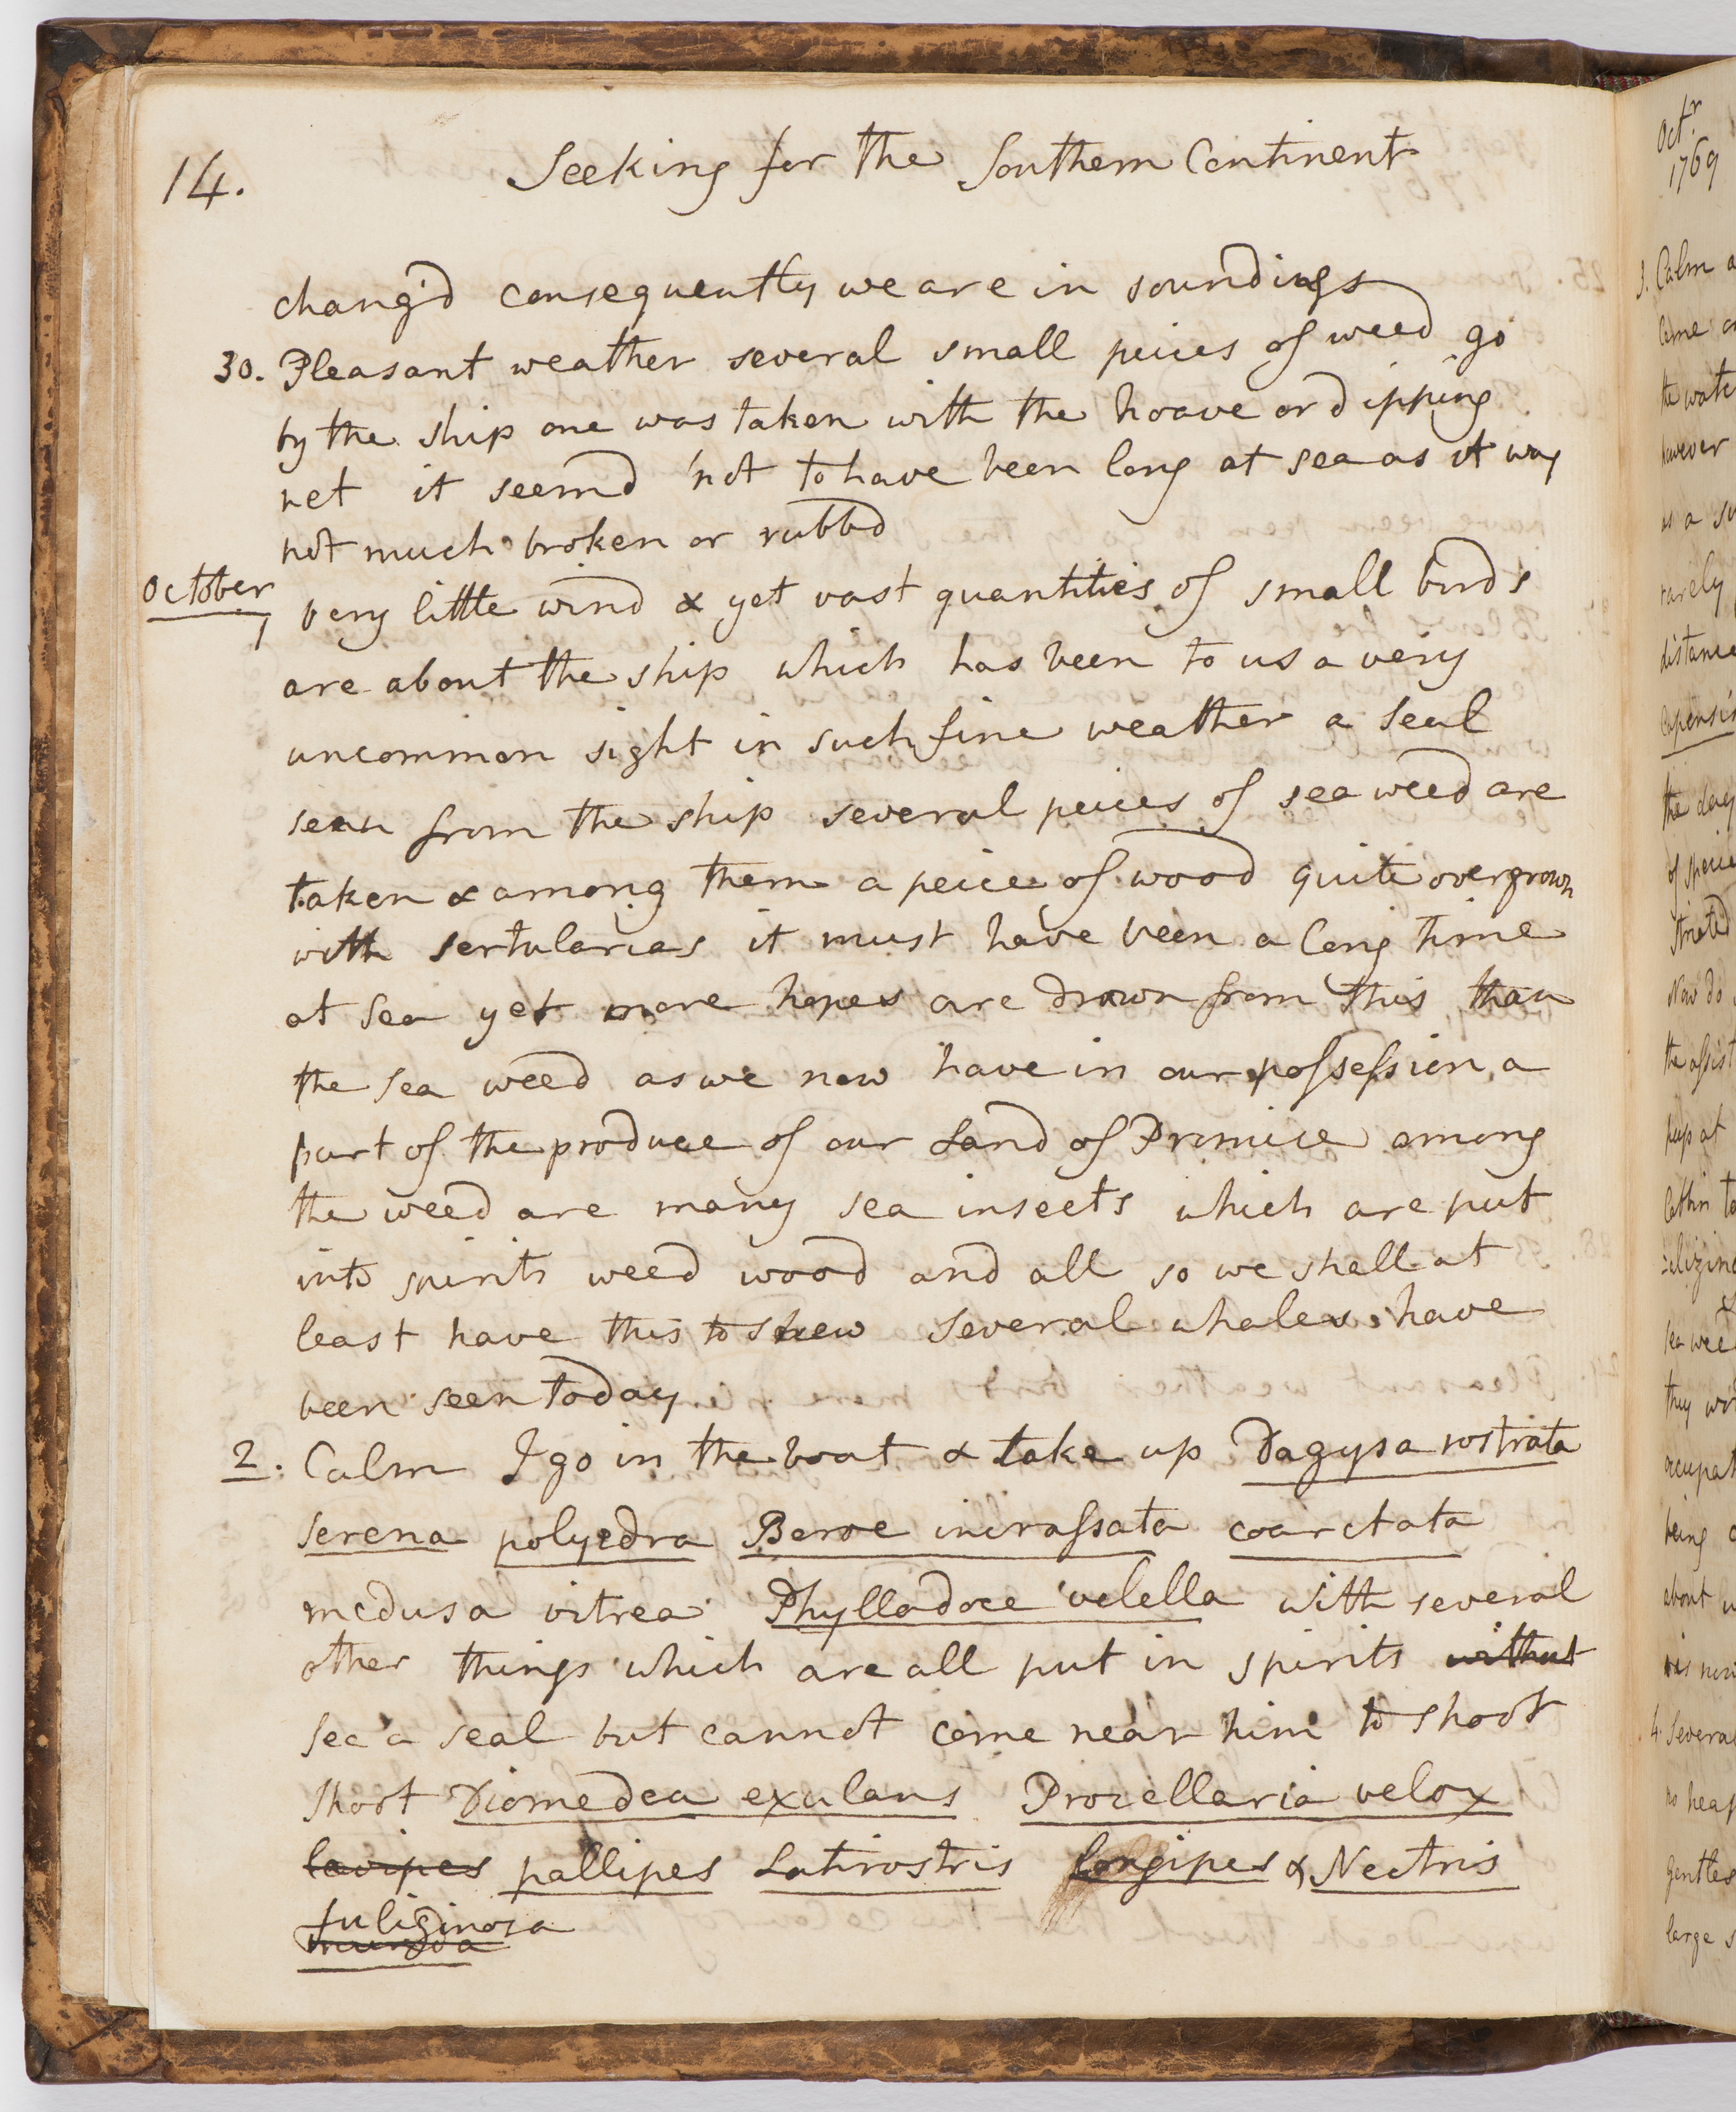 14.
Seeking for the Southern Continent
chang'd consequently we are in soundings
30. Pleasant weather several small peices of weed go
by the ship one was taken with the hoave or dipping
net it seemd not to have been long at sea as it was
not much broken or rubbd
October
1 Very little wind & yet vast quantities of small birds
are about the ship which has been to us a very
uncommon sight in such fine weather a Seal
seen from the ship several peices of sea weed are
taken & among them a peice of wood quite overgrown
with sertularias it must have been a long time
at Sea yet more hopes are drawn from this than
the Sea weed as we now have in our possession a
part of the produce of our Land of Promise among
the weed are many sea insects which are put
into spirits weed wood and all so we shall at
least have this to shew several whales have
been seen today
2. Calm I go in the boat & take up Dagysa rostrata
serena polyedra Beroe incrassata coarctata
medusa vitrea Phyllodoce velella with several
other things which are all put in spirits without
see a seal but cannot come near him to shoot
Shoot Diomedea exulans Procellaria velox
pallipes Latirostris longipes & Nectris
fuliginosa
munda
Octr
1769
3. Calm
came
the wate
however
as a su
rarely
distance
capensis
the day
of specie
striated
Now do
the assist
peep at
Cabbin
sea wee
they
occupat
being
about
4. Several
no heav
Gentles
large s